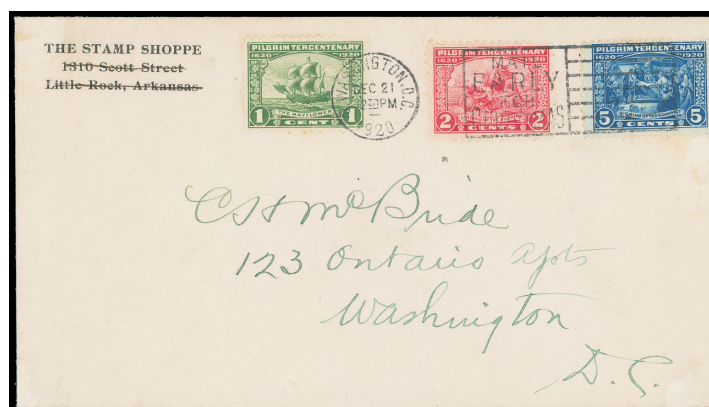 THE STAMP SHOPPE
1310 Scott Street
Little Rock, Arkansas
PILGRIM TERCENTENARY
1620 1920
THE MAYFLOWER
1 CENT 1
WASHINGTON, D.C.
DEC 21
PM
1920
PILGRIM TERCENTENARY
1620 1920
2 CENTS 2
MAIL
EARLY
FOR
PILGRIM TERCENTENARY
1620 1920
5 CENTS 5
C S H McBride
123 Ontario Apts
Washington
D.C.